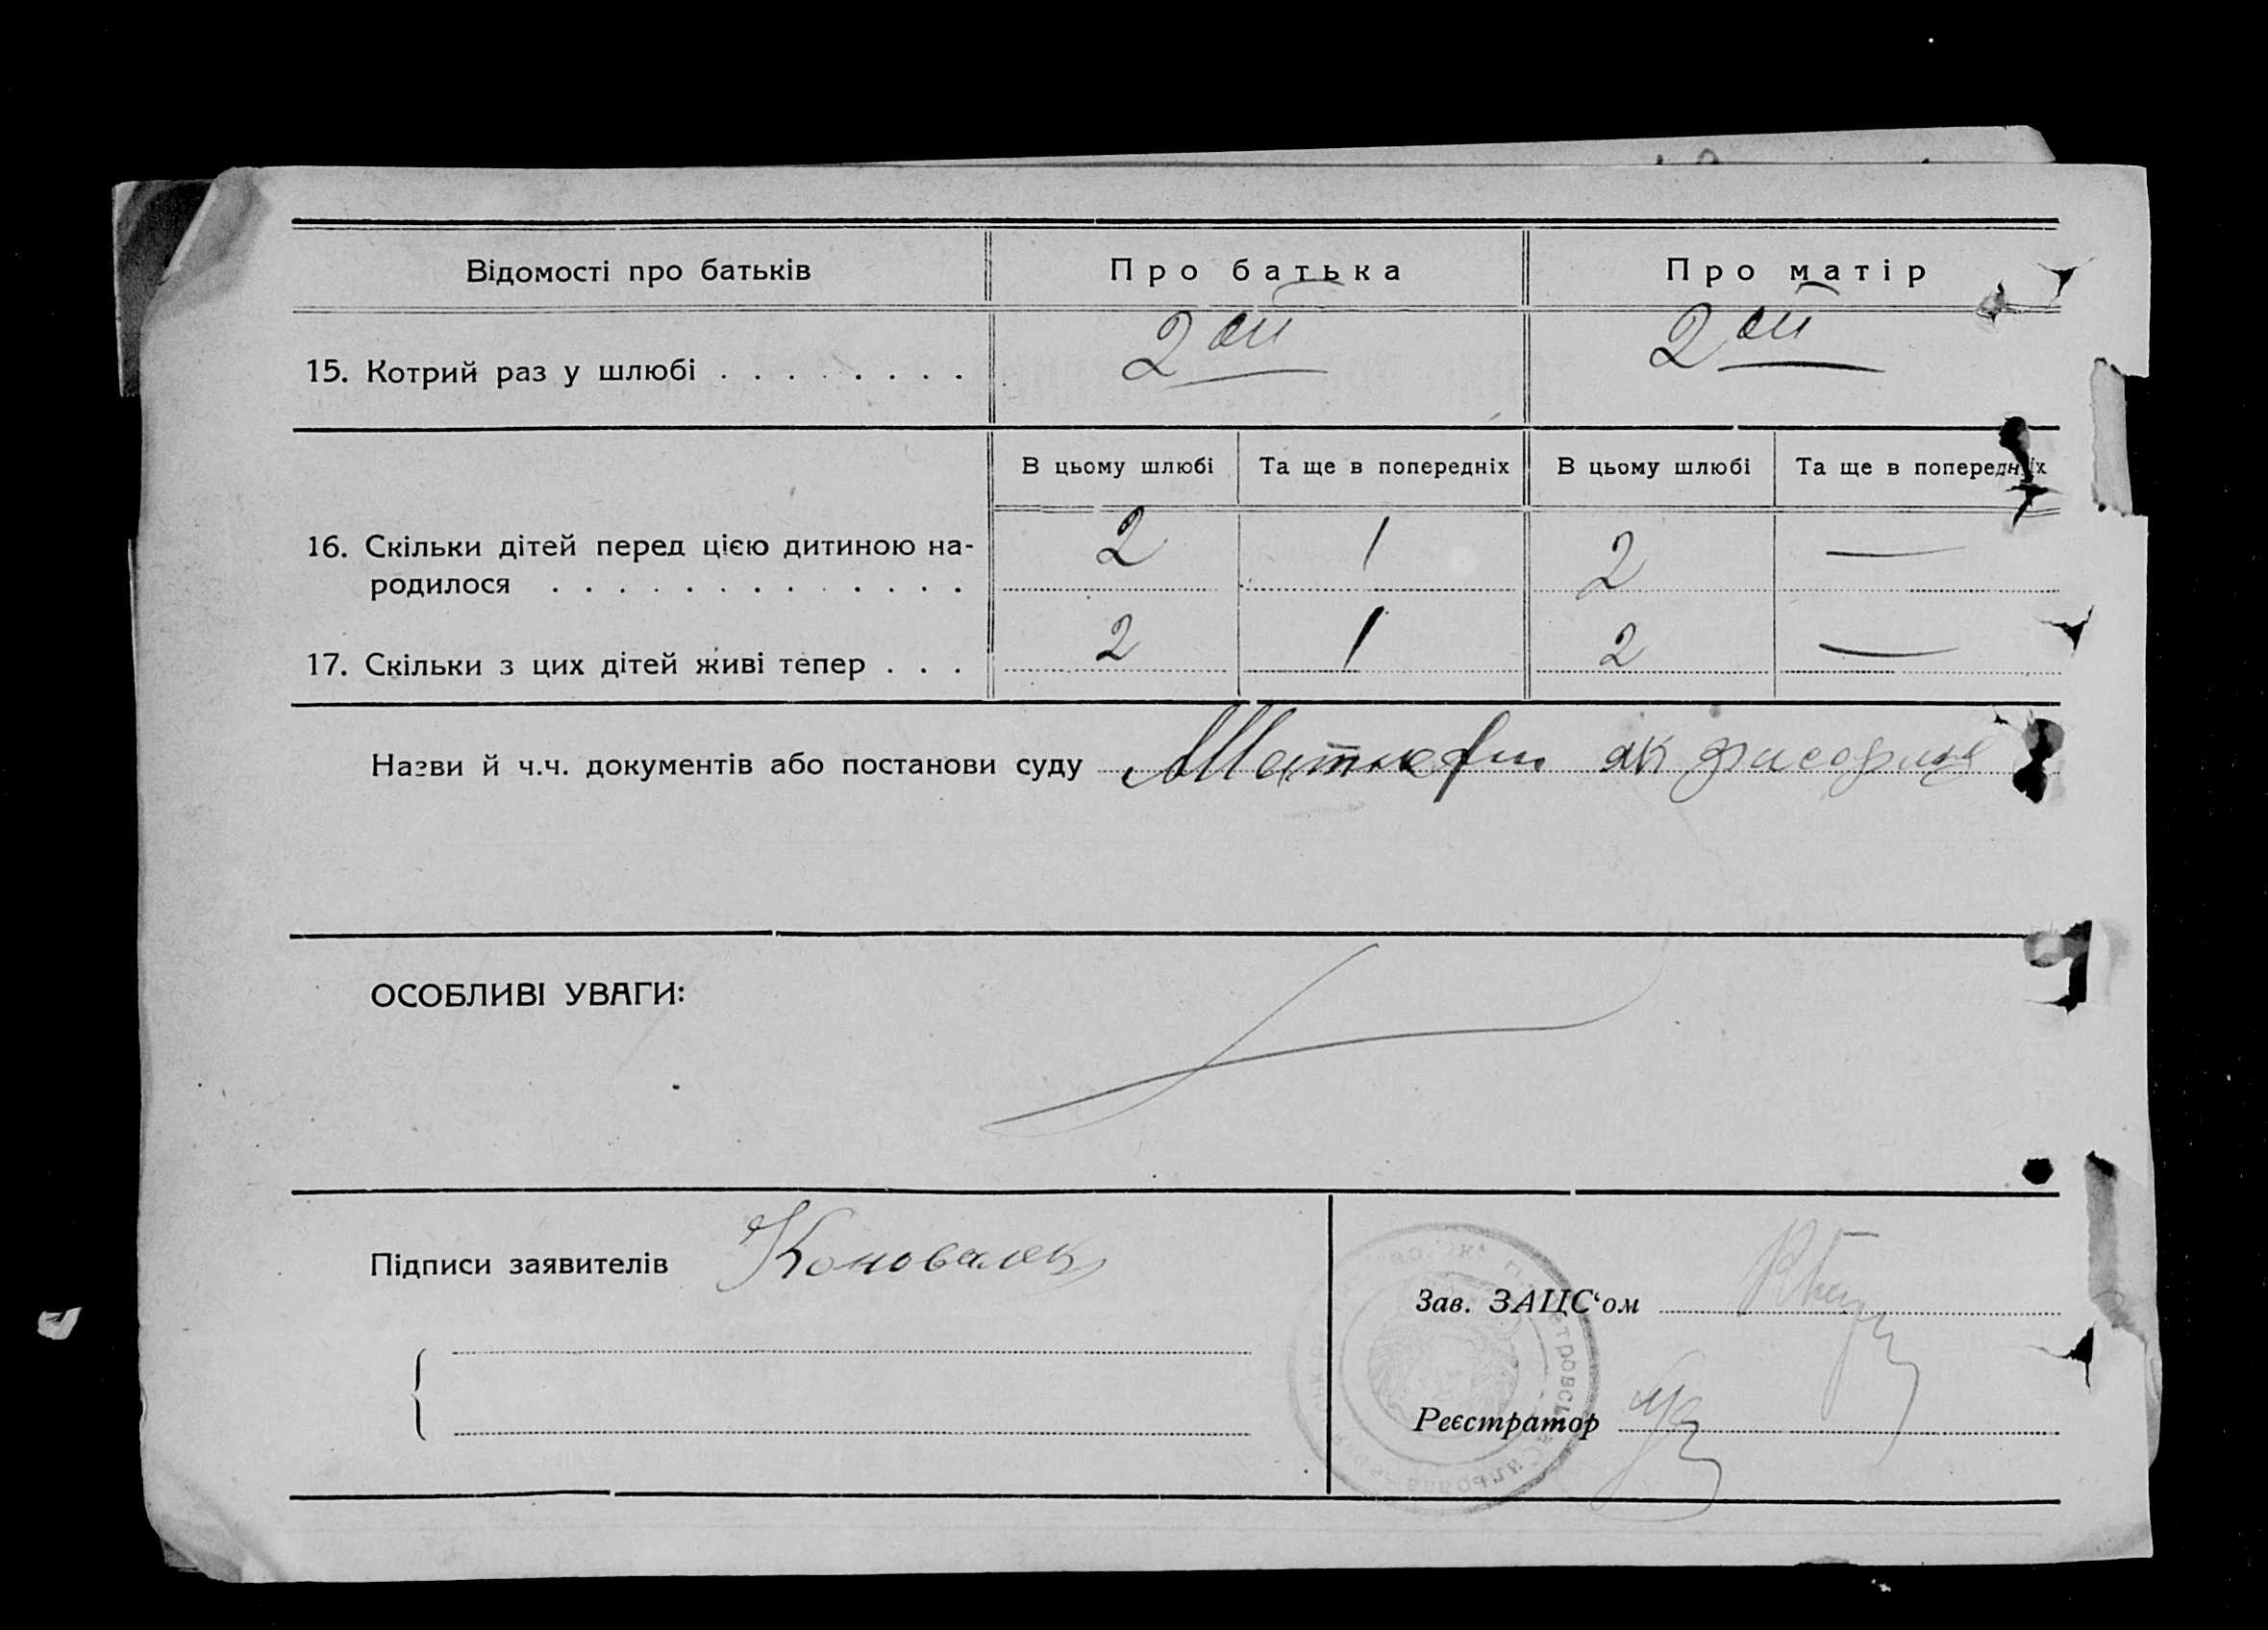 Відомості про батьків
Про батька
Про матір
15. Котрий раз у шлюбі . . . . . . . .
2ой
2ой
В цьому шлюбі
Та ще в попередніх
В цьому шлюбі
Та ще в попередніх
16. Скільки дітей перед цією дитиною на-
родилося . . . . . . . . . . . . .
2
1
2
—
17. Скільки з цих дітей живі тепер . . .
2
1
2
—
Назви й ч.ч. документів або постанови суду
як
ОСОБЛИВІ УВАГИ:
Підписи заявителів
Зав. ЗАЦС‘ом
Реєстратор